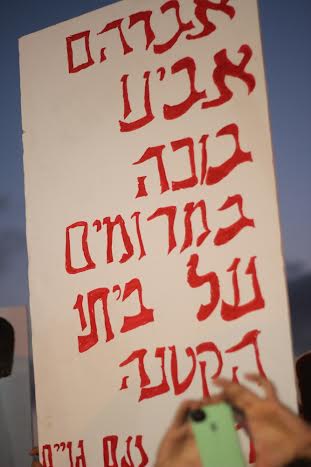 אברהם
אבינו
בוכה
במרומים
על ביתו
הקטנה